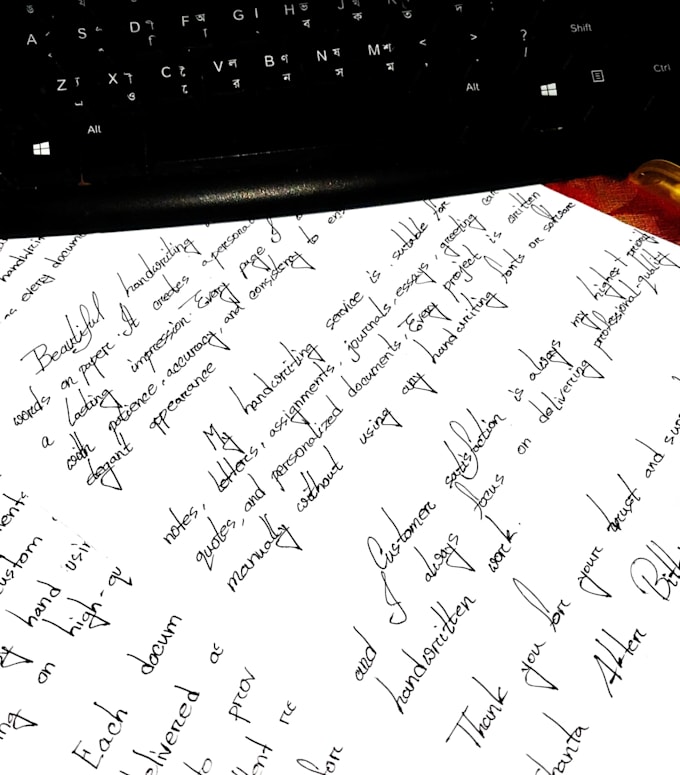 A S D F অ G I H ব J K ত দ
Z X ও C V ল র B ণ ন N ষ স M শ ম < , > . ? / Shift
Alt Alt Ctrl
handwriting
as every docum
Beautiful handwriting
words on paper. It creates a persona
a lasting impression. Every page
with patience, accuracy, and consistency to en
elegant appearance
My handwriting service is suitable for
notes, letters, assignments, journals, essays, greeting car
quotes, and personalized documents, Every project is written
manually without using any handwriting fonts or software
Customer satisfaction is always my highest
and I always focus on delivering professional-quality
handwritten work.
Thank you for youre and
Akter Bith
hanta
ments
custom
hand usin
ng on high-qu
Each docum
elivered as
to prov
ent re
for